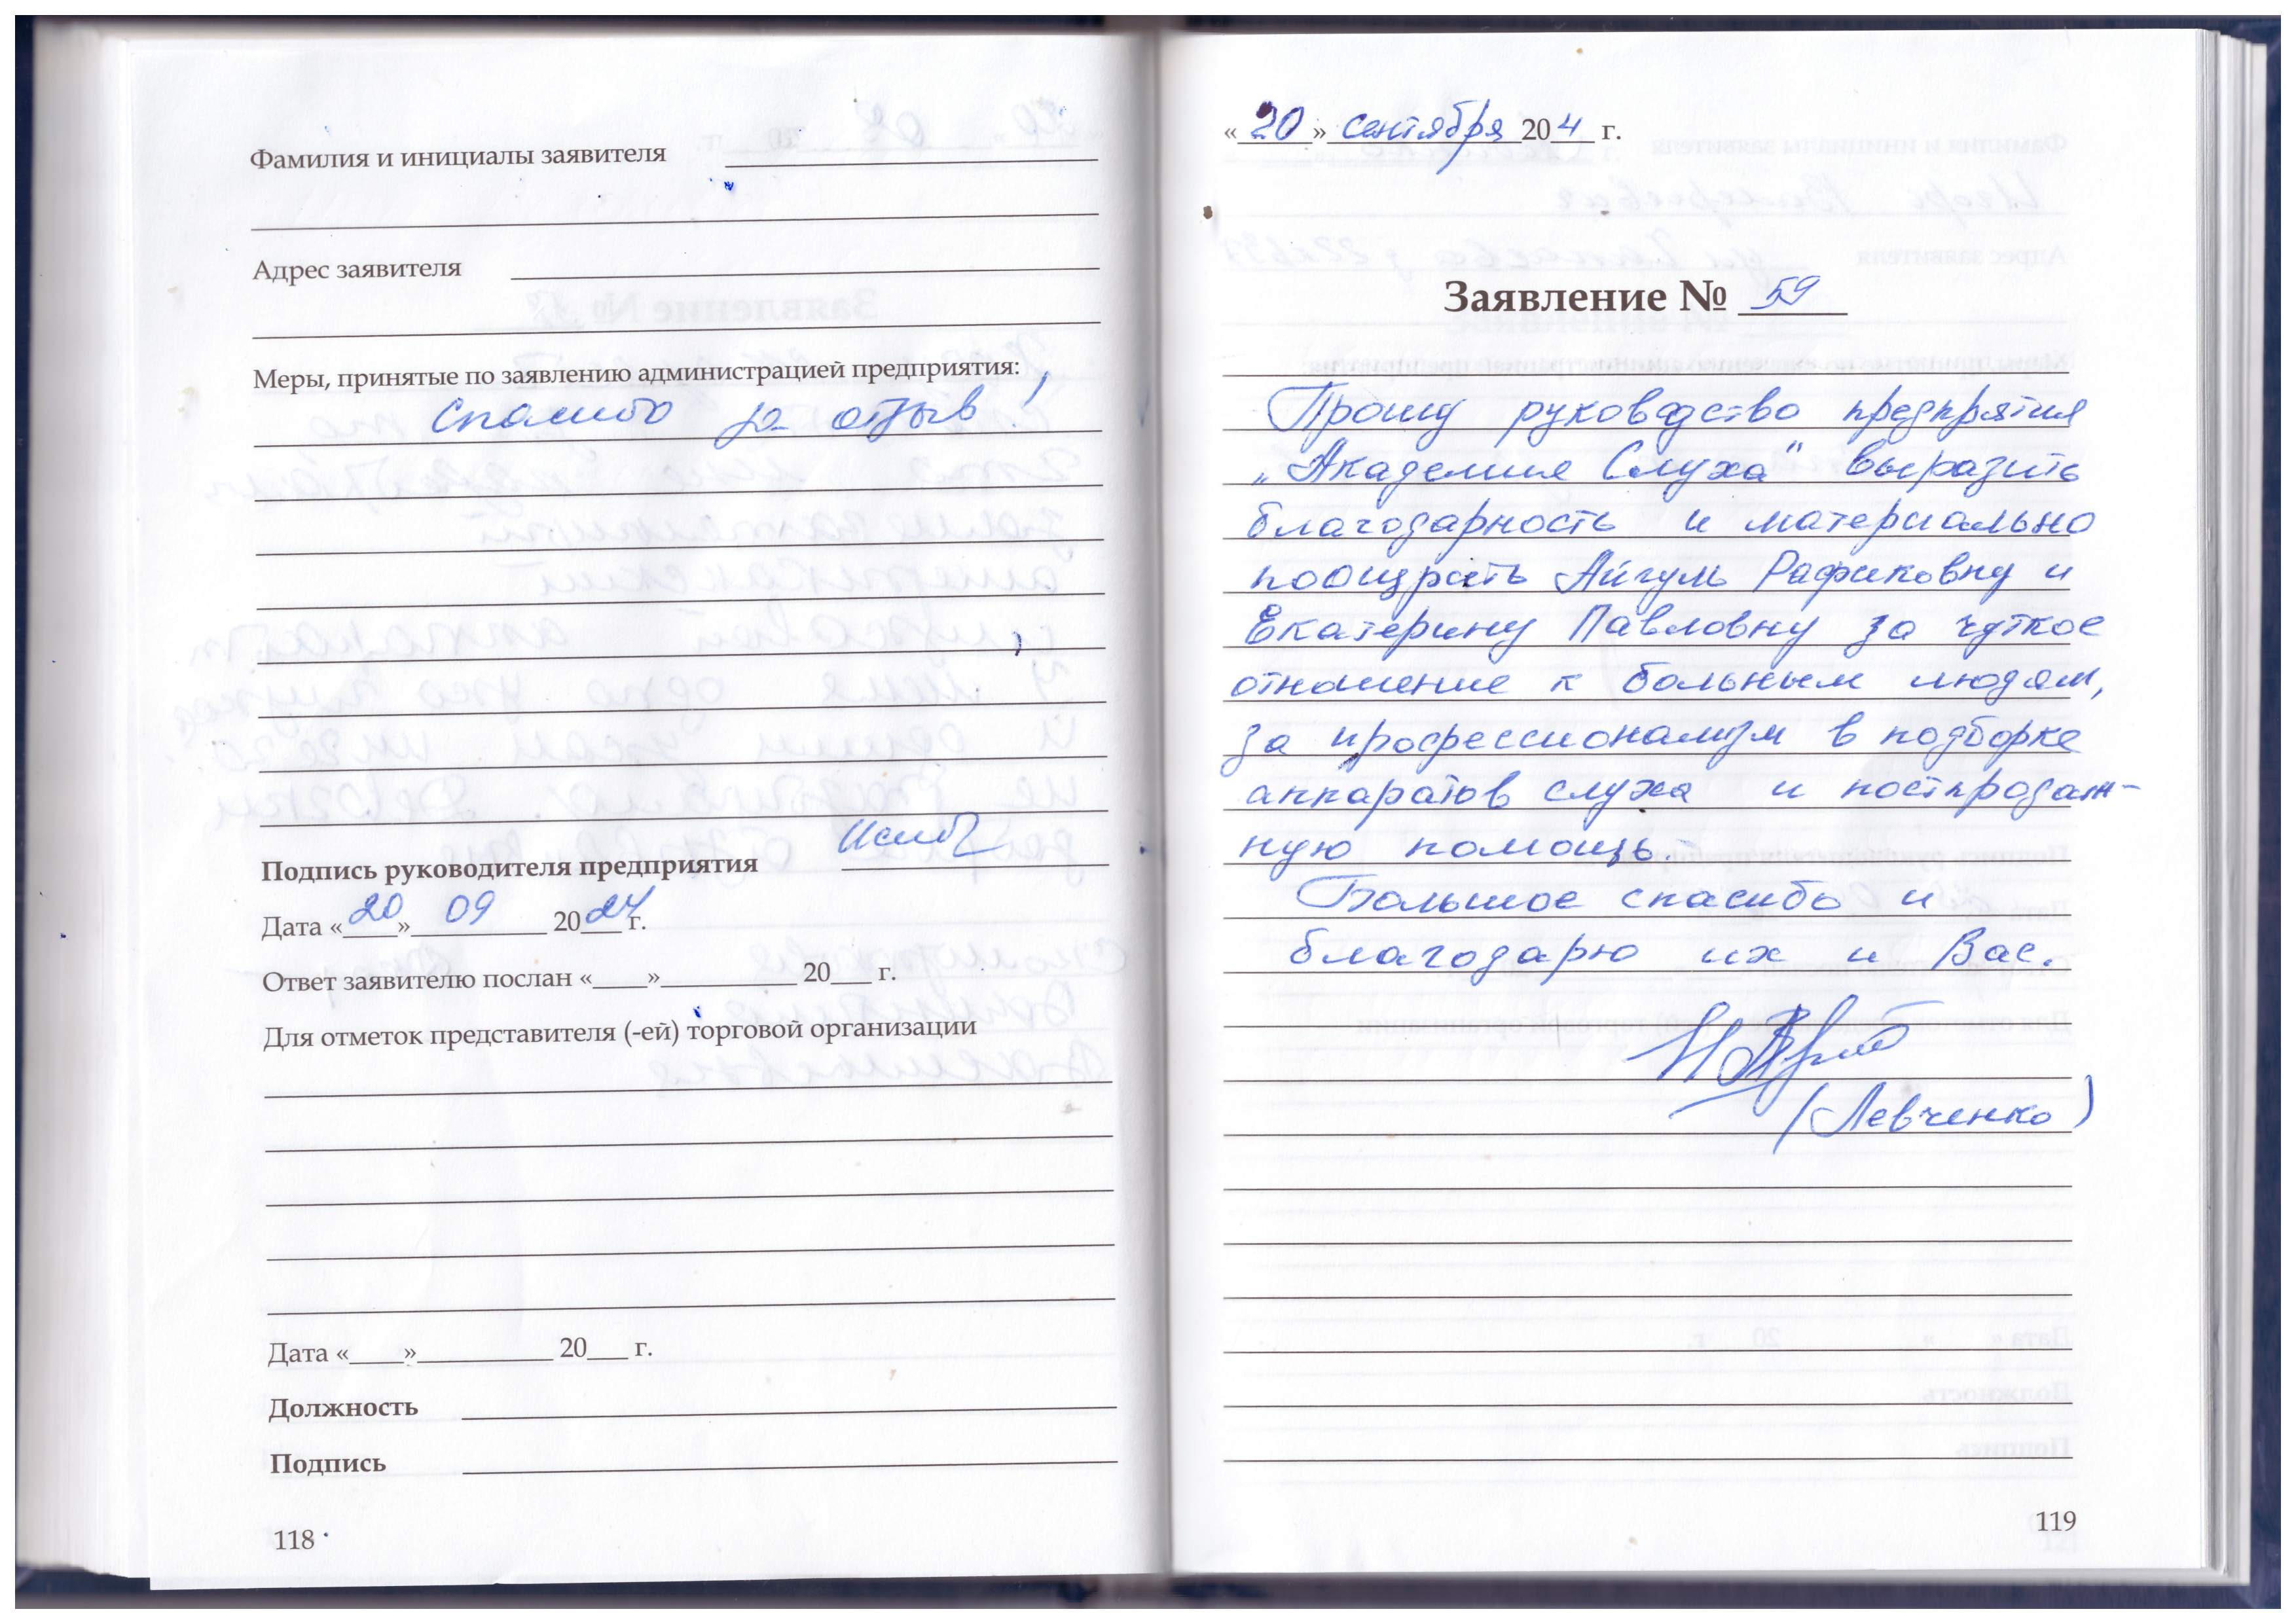 Фамилия и инициалы заявителя
Адрес заявителя
Меры, принятые по заявлению администрацией предприятия:
Спасибо за отзыв!
Подпись руководителя предприятия
Дата «20» 09 2024 г.
Ответ заявителю послан «____»__________ 20___ г.
Для отметок представителя (-ей) торговой организации
Дата «____»__________ 20___ г.
Должность
Подпись
118
«20» сентября 204 г.
Заявление № 59
Прошу руководство предпрятия
„Академия Слуха" выразить
благодарность и материально
поощрить Айгуль Рафиковну и
Екатерину Павловну за чуткое
отношение к больным людям,
за профессионализм в подборке
аппаратов слуха и постпродаж-
ную помощь.
Большое спасибо и
благодарю их и Вас.
(Левченко)
119